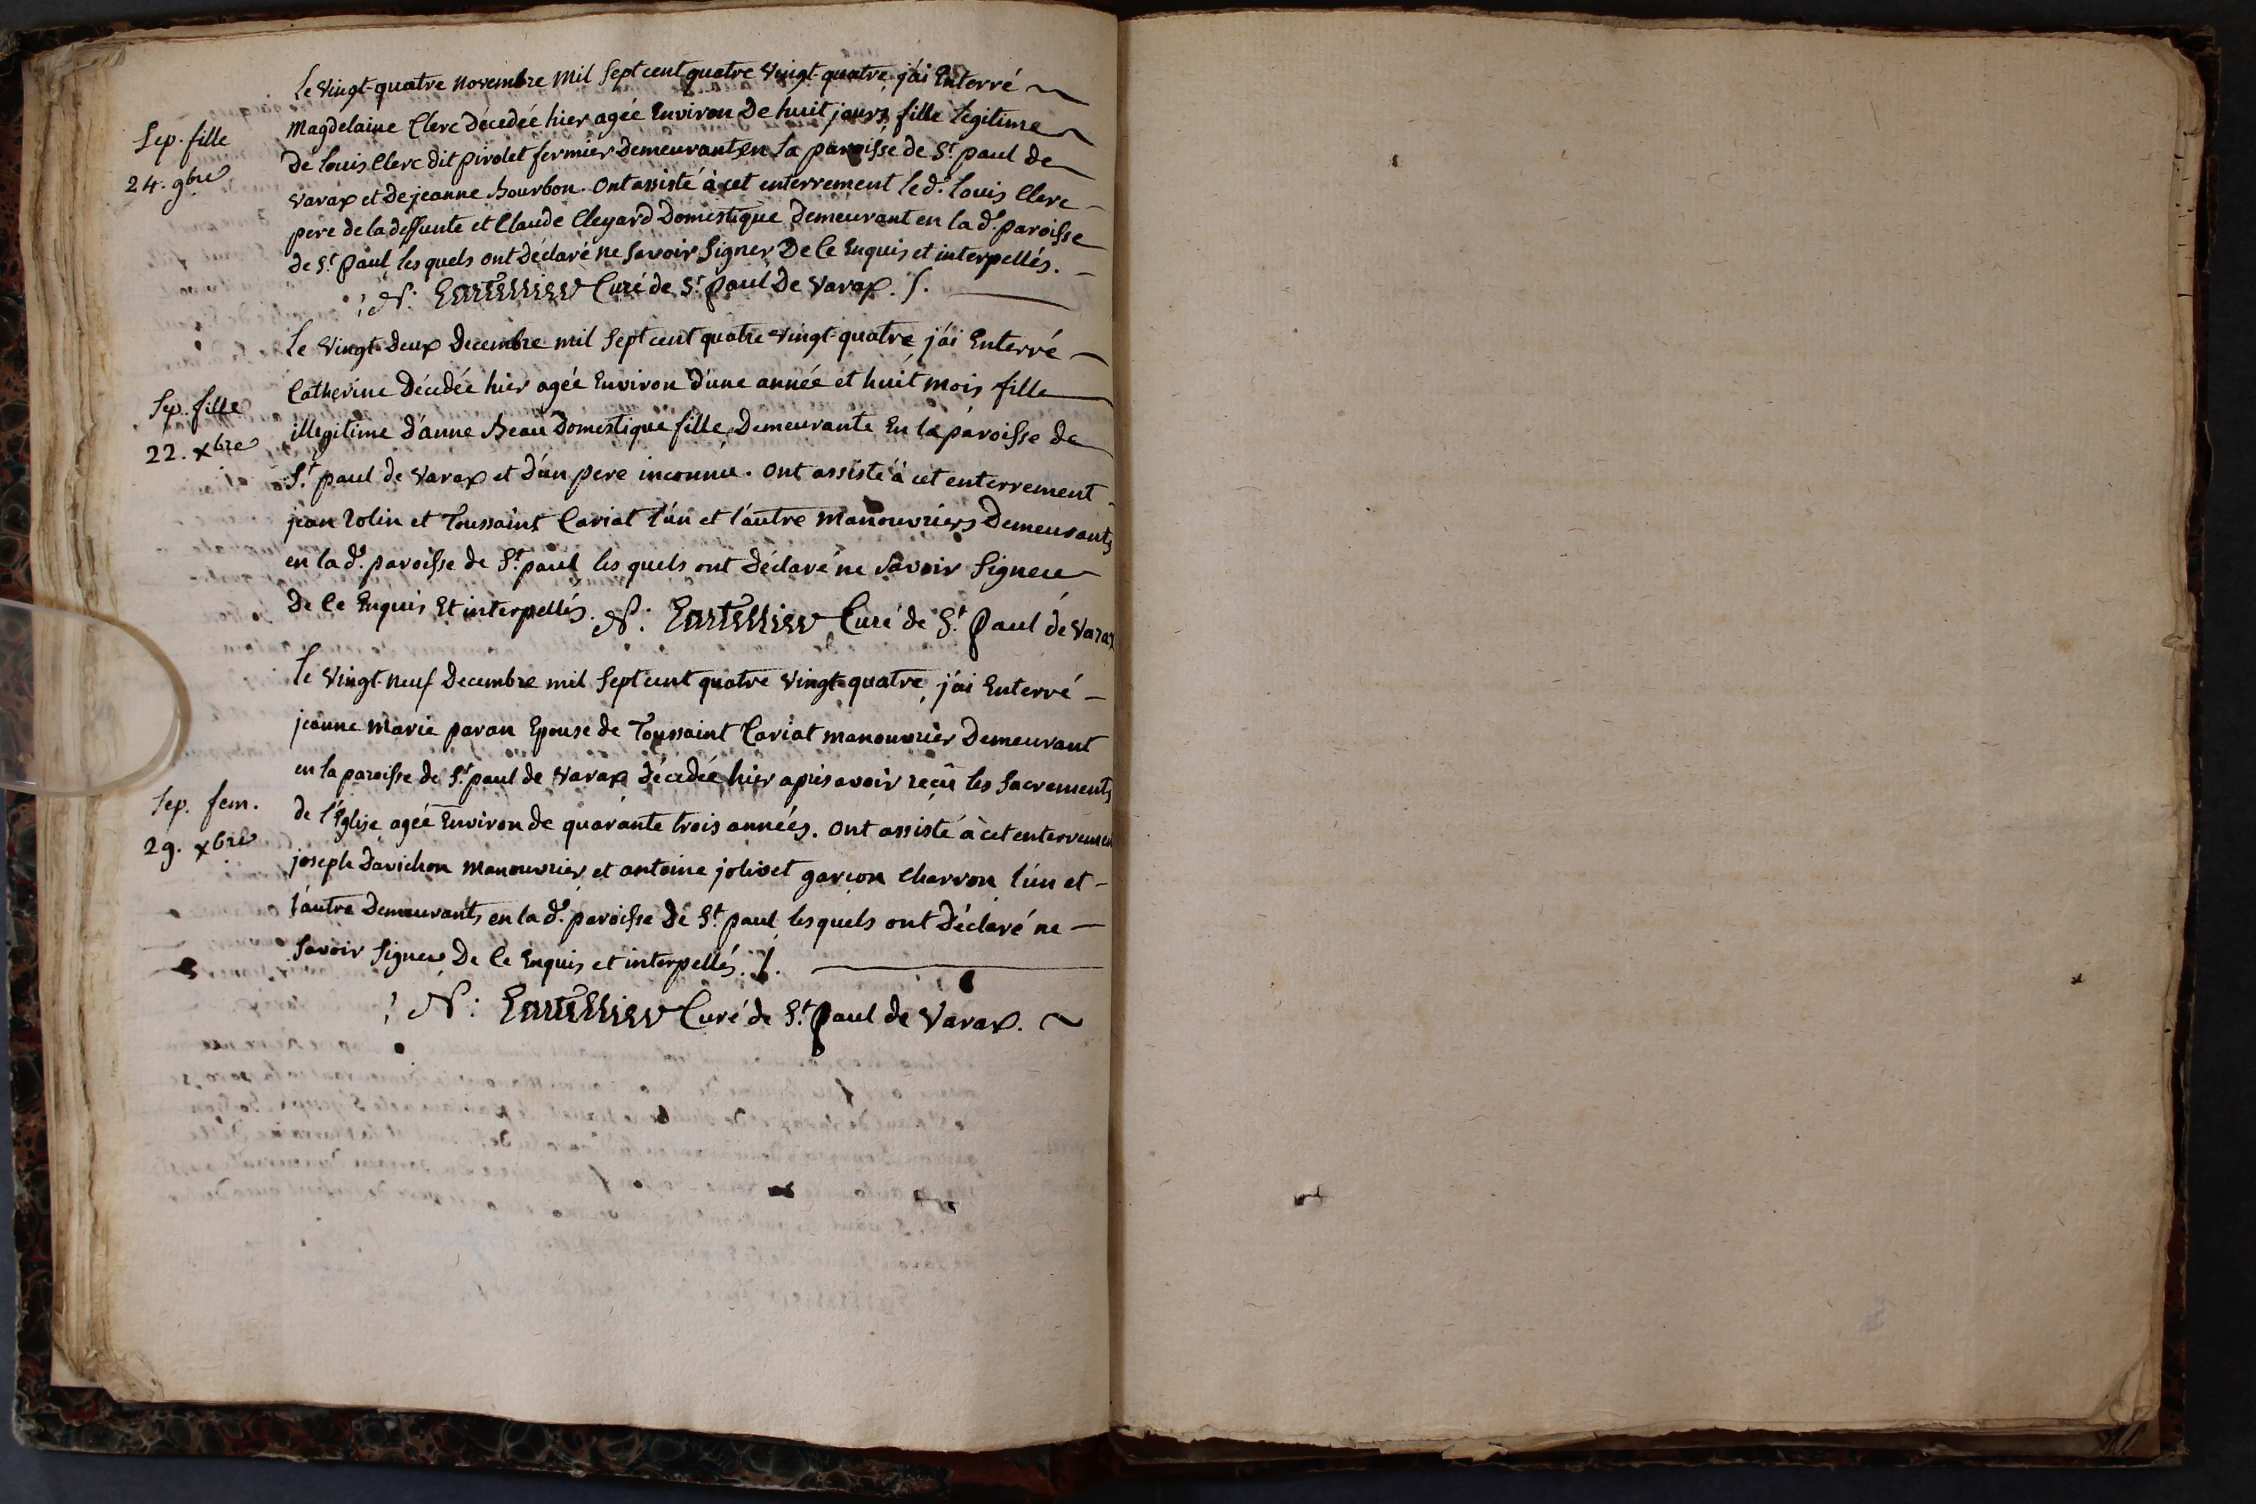 Le vingt-quatre novembre mil sept cent quatre vingt-quatre, j'ai Enterré
Sep. fille
24. 9bre
Magdelaine Clerc décedée hier agée Environ De huit jours, fille legitime
De louis Clerc dit pirolet fermier Demeurants en la paroisse de St. paul de
varax et De jeanne Bourbon. Ont assisté à cet enterrement le d. louis Clerc
pere de la deffunte et Claude Cleyard Domestique Demeurant en la de. paroisse
de St. paul, les quels ont déclaré ne savoir signer De Ce Enquis et interpellés.
Curé de St. paul De varax.
Le vingt-deux decembre mil sept cent quatre vingt-quatre, j'ai Enterré
Sep. fille
22. xbre
Catherine Décedée hier agée Environ d'une année et huit mois, fille
illegitime d'anne Beau Domestique fille, Demeurante En la paroisse de
St. paul de varax et d'un pere inconnu. Ont assisté à cet enterrement
jean rolin et Toussaint Cariat l'un et l'autre manouvriers Demeurants
en la de. paroisse de St. paul, les quels ont déclaré ne savoir signer
De Ce Enquis Et interpellés.
Curé de St. Paul de varax
Le vingt-neuf decembre mil sept cent quatre vingt-quatre, j'ai Enterré
jeanne marie paran Epouse de Toussaint Cariat manouvrier Demeurant
en la paroisse de St. paul de varax décedée hier après avoir reçu les sacrements
Sep. fem.
29. xbre
de l'Eglise, agée Environ de quarante trois années. Ont assisté à cet enterrement
joseph Davichon manouvrier, et antoine jolivet garçon charron l'un et
l'autre Demeurants en la de. paroisse de St. paul, les quels ont déclaré ne
savoir signer De Ce Enquis et interpellés.
Curé de St. Paul de varax.